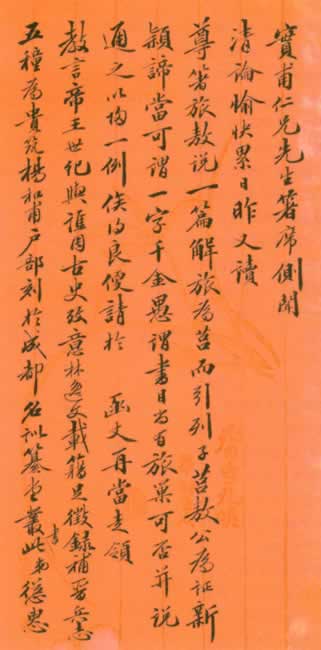 寶甫仁兄先生箸席側聞
清論愉快累日昨又讀
尊箸旅敖說一篇解旅為莒而引列子莒敖公為証新
穎諦當可謂一字千金愚謂書目尚有旅巢可否并說
通之以為一例俟得良便請於 函丈再當走領
教言帝王世紀與譙周古史攷意林逸文載籍足徵錄補晉兵志
五種為貴筑楊和甫戶部刻於成都名訓纂堂叢書此弟慫恿